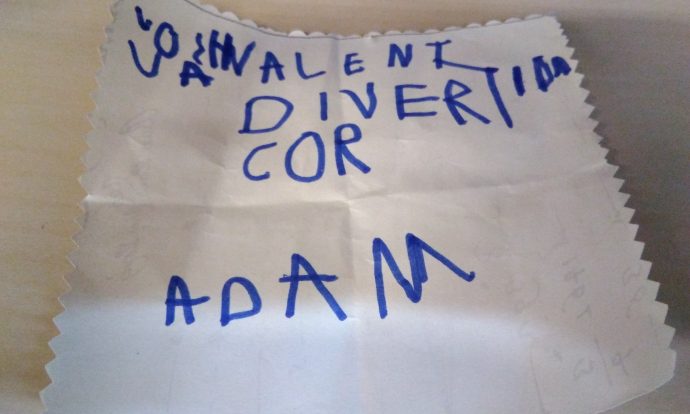 VALENT
DIVERTIDA
COR
ADAM